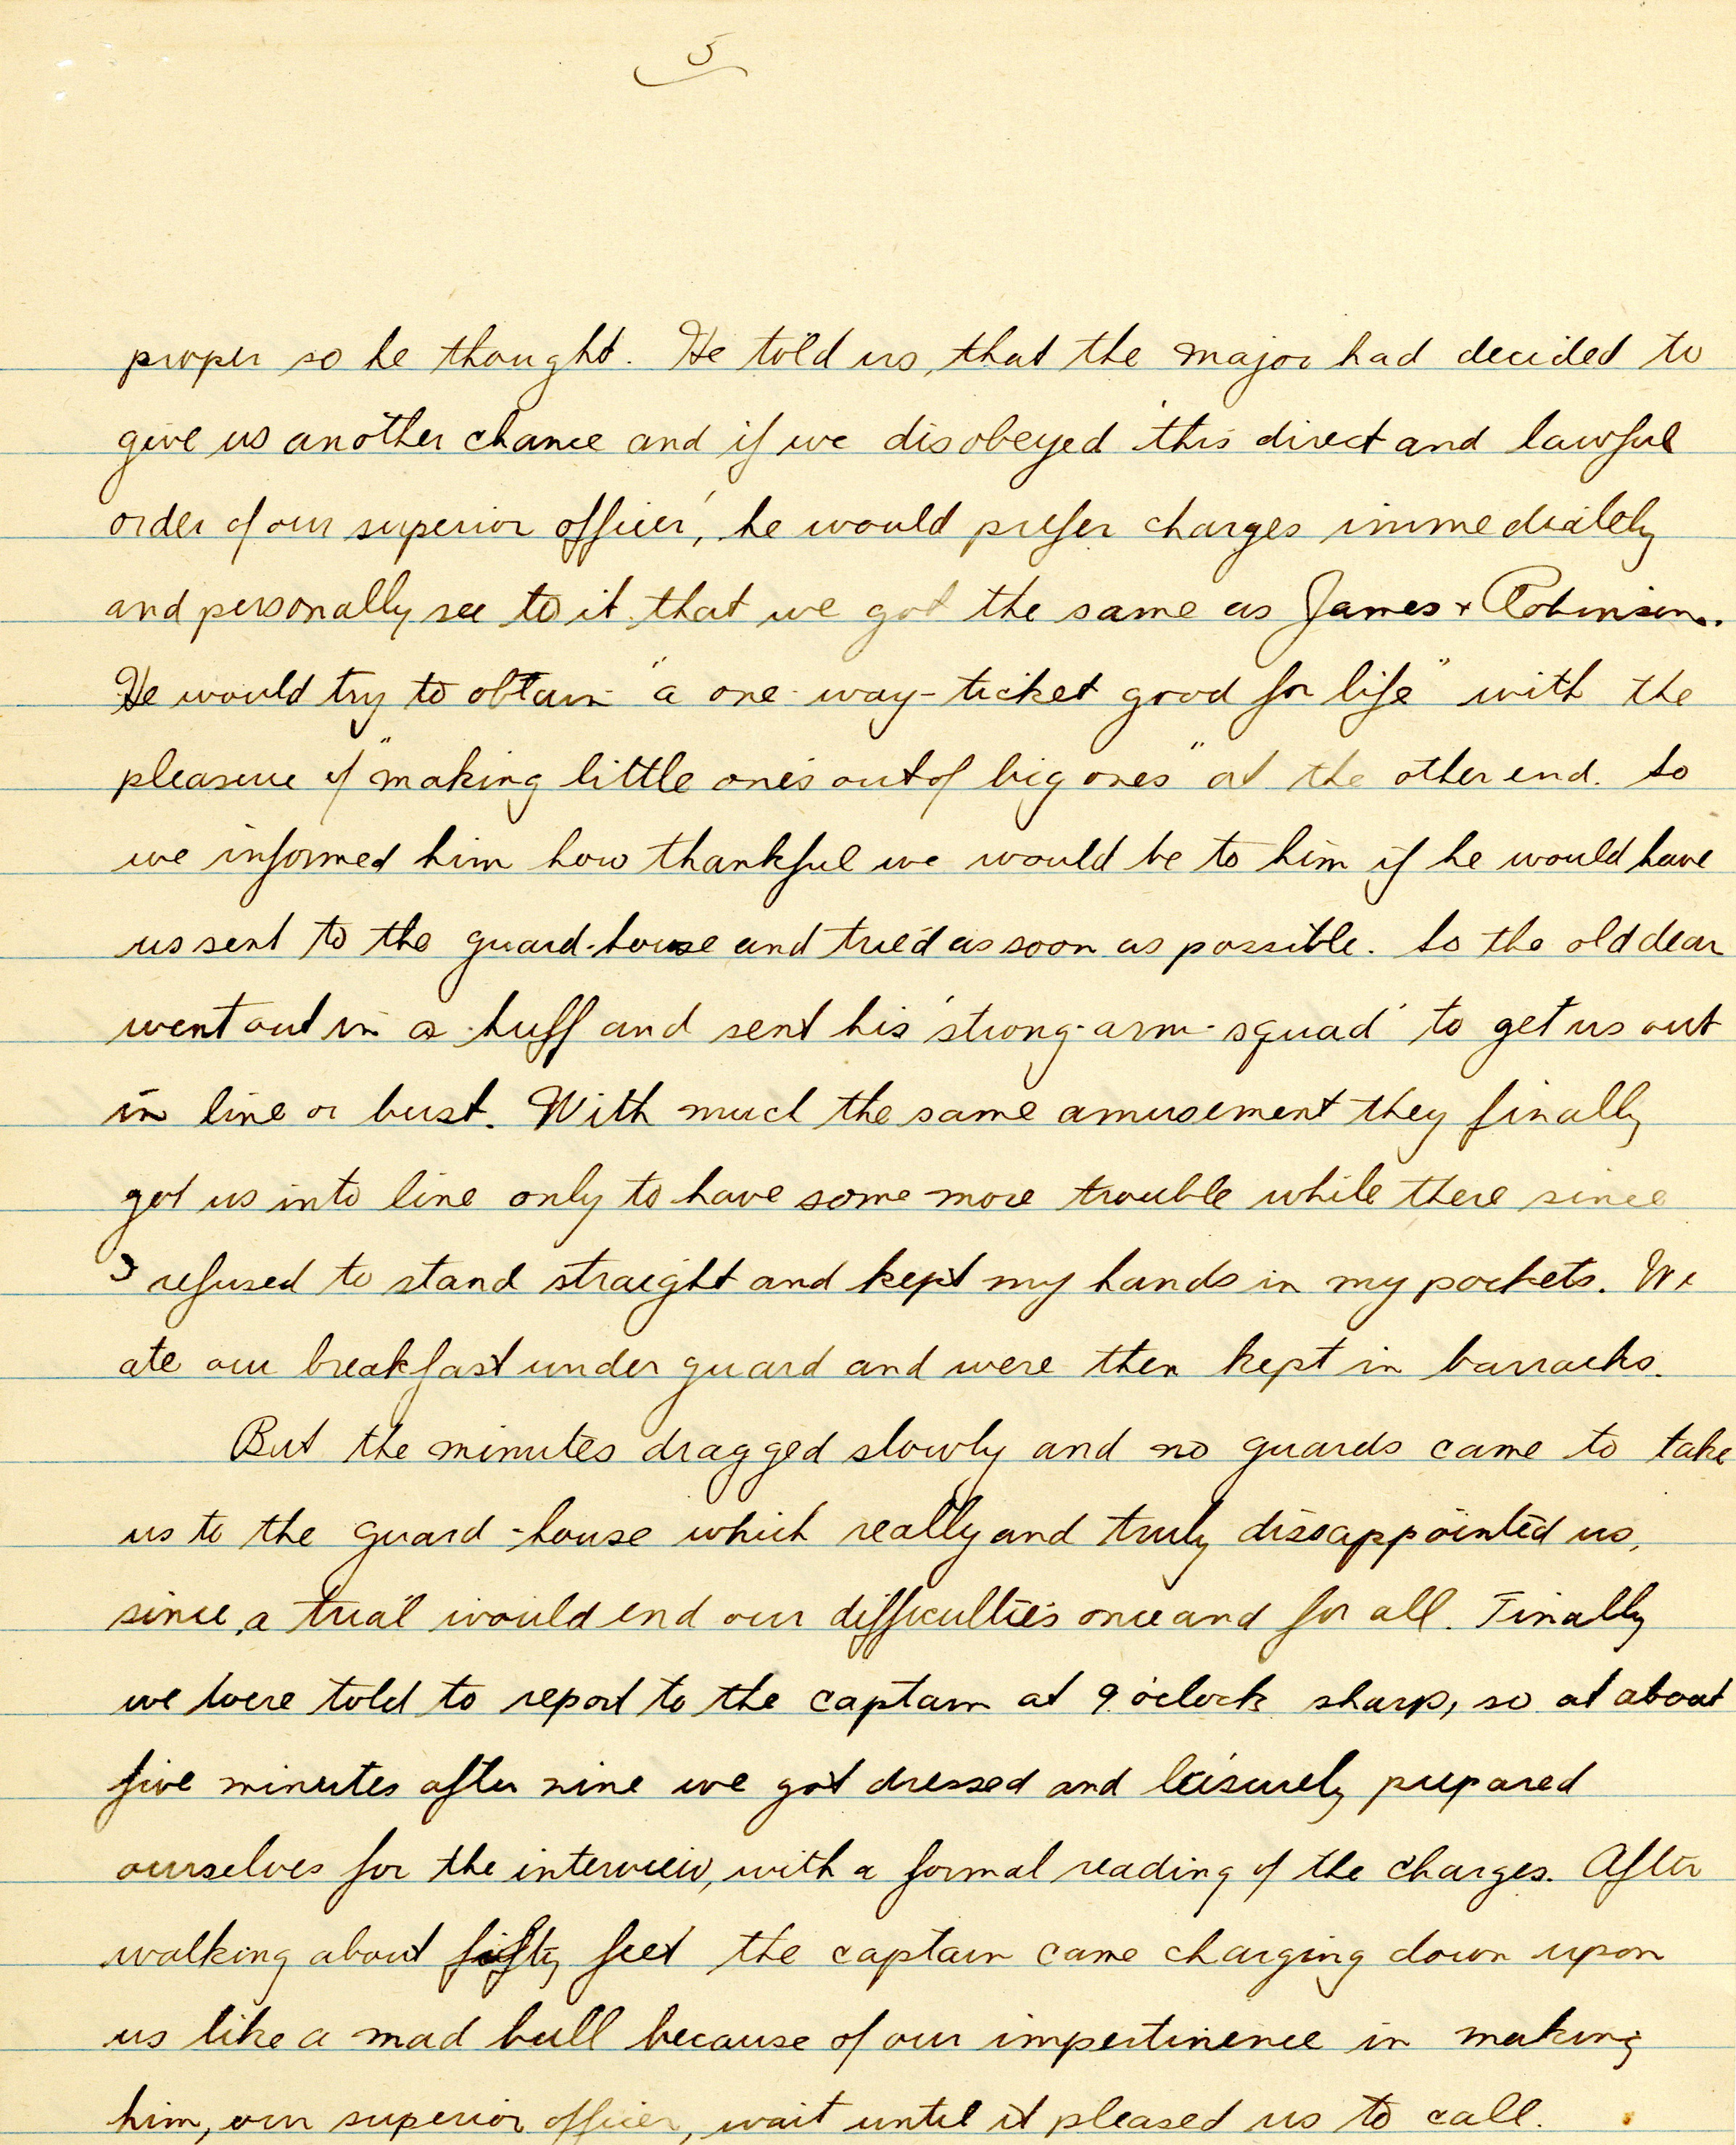 5
proper so he thought. He told us, that the major had decided to
give us another chance and if we disobeyed 'this direct and lawful
order of our superior officer', he would prefer charges immediately
and personally see to it that we got the same as James + Robinson.
He would try to obtain "a one-way-ticket good for life" with the
pleasure of "making little one's out of big ones" at the other end. So
we informed him how thankful we would be to him if he would have
us sent to the guard-house and tried as soon as possible. So the old dear
went out in a huff and sent his 'strong-arm-squad' to get us out
in line or bust. With much the same amusement they finally
got us into line only to have some more trouble while there since
I refused to stand straight and kept my hands in my pockets. We
ate our breakfast under guard and were then kept in barracks.
But the minutes dragged slowly and no guards came to take
us to the guard-house which really and truly dissappointed us,
since a trial would end our difficulties once and for all. Finally
we were told to report to the captain at 9 o'clock sharp, so at about
five minutes after nine we got dressed and leisurely prepared
ourselves for the interview, with a formal reading of the charges. After
walking about fifty feet the captain came charging down upon
us like a mad bull because of our impertinence in making
him, our superior officer, wait until it pleased us to call.